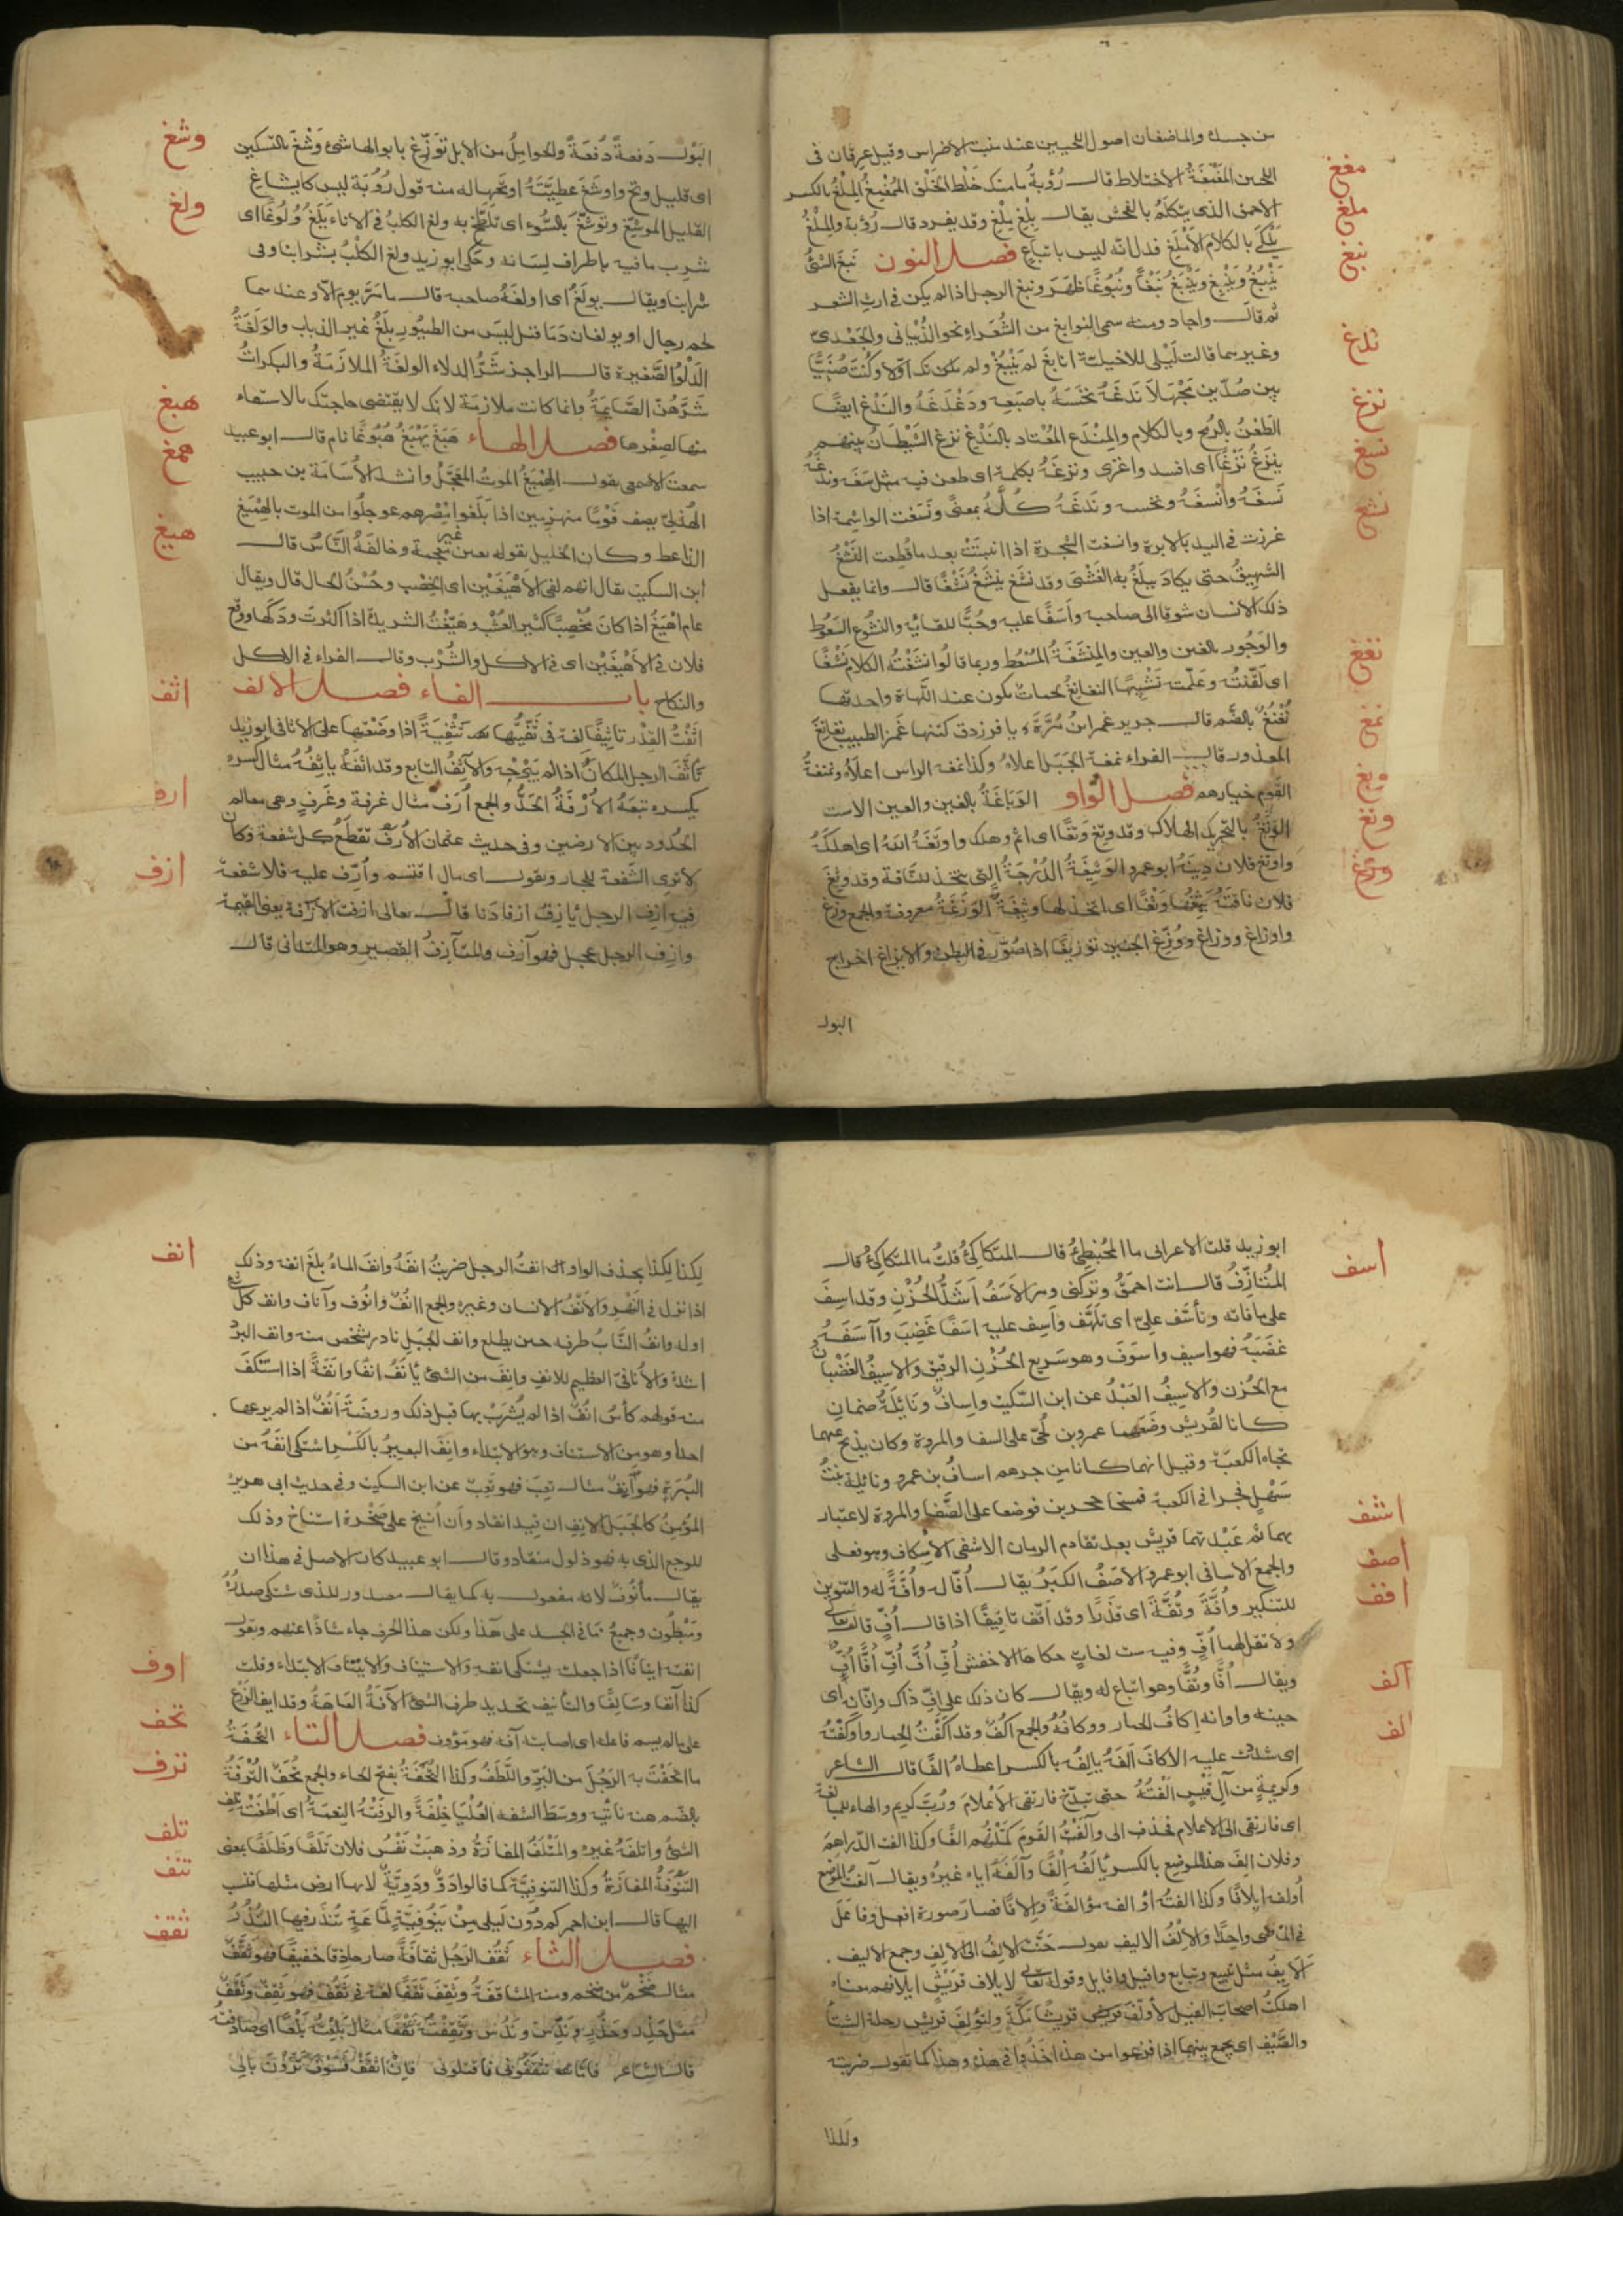 من جسده والماضغان اصول اللحيين عند منبت الاضراس وقيل عرقان فى
مغغ
اللحيين المَغْمَغَةُ الاختلاط قال رُؤبةُ ما منك خَلط الخَلْق المُمَغْمَغِ المِلْغُ بالكسر
ملغ
الاحمق الذى يتكلم بالفحش يقال بِلْغ مِلْغ وقد يفرد قال رُؤبة والمِلْغُ
يَلْكَى بالكلام الأَمْلَغِ فدل انّه ليس باتباع فصل النون نبغ الشئُ
نبغ
يَنْبُغُ ويَنْبِغُ ويَنْبَغُ نَبْغًا ونُبُوغًا ظهَرَ ونبغ الرجل اذا لم يكن فى ارث الشعر
ثم قال واجاد ومنه سمى النوابغ من الشُعَراءِ نحو الذُبيانى والجَعْدىّ
ندغ
وغيرهما قالت لَيْلى للاخيلية انابغ لم يَنْبُغْ ولم تكن تك اوّلا وكُنْتَ صُنَيًّا
بين صُدّين مَجْهَلا نَدَغَهُ نَخَسَهُ باصبَعِه ودَغْدَغَهُ والنَدْغ ايضًا
نزغ
الطَعْنُ بالرُمح وبالكلام والمِنْدَغ المُعْتاد بالنَدْغ نزغ الشَيْطانُ بينهم
نسغ
ينزَغُ نَزْغًا اى افسد واغرى ونزغَهُ بكلمة اى طعن فيه مثل نَسَغَه وندغَهُ
نَسغَهُ وانْسغَهُ ونخسه ونَدَغَهُ كلُّهُ بمعنًى ونَسَغت الواشمة اذا
نشغ
غرزت فى اليد بالابرة وانسغت الشجرة اذا انبَتَتْ بعد ما قُطِعت النَشْغُ
الشهيقُ حتى يكادَ يبلُغ به الغَشْىَ وقد نشغ ينشَغُ نَشْغًا قال وانما يفعل
ذلك الانسان شوقا الى صاحبه واسَفًا عليه وحُبًّا للقائه والنشوغ السَعُوط
والوَجُور بالغين والعين والمِنشغَةُ المُسْعُط وربما قالوا نشَغْتُه الكلام نَشْغًا
نغغ
اى لَقّنْتُه وعَلّمْته تَشْبيهًا النغانغُ لحمات تكون عند اللَّهاة واحدتها
نُغْنُغ بالضّم قال جرير غمز ابنُ مُرَّةَ يا فرزدق كَيْنَها غَمز الطبيب نغانغ
نمغ
المعذور قال الفراء نمَغَة الجَبَل اعلاه وكذا نمغه الراس اعلاه ونمغةُ
القوم خيارهم فصل الواو الوَبَاغَةُ بالغين والعين الاست
وبغ
الوَتَغُ بالتحريك الهلاك وقد وتِغ وَتَغًا اى اثم وهلك واوتَغَهُ اللهُ اى اهلكَهُ
وتغ
واوتغ فلان دِينَهُ ابو عمرو الوَثيغَةُ الدُرْجَةُ التى يتخذ للنّاقة وقد وثِغ
وزغ
فلان ناقتَهُ يَثِغُها وَثْغًا اى اتخذ لها وثيغةً الوَزَغَةُ معروفة والجمع وزغ
واوزاغ ووزاغ ووُزّغ الجنين توزيغًا اذا صُوّر فى البطن والايزاغ اخراج
البول
البَوْل دَفعةً دُفعَةً والحوامِلُ من الابل توَزّغ بابوالها شئ وَشْغٌ بالتسكين
وشغ
اى قليل وتح واوشغ عطِيَّتَهُ اوتحها له منه قول رُؤْبَة ليس كايشاغِ
القليل الموشغ وتوشّغ بالسُوء اى تلطّخ به ولغ الكلبُ فى الاناء يَلَغُ وُلُوغًا اى
ولغ
شرب ما فيه باطراف لسانه وحكى ابو زيد ولغ الكلْبُ بشرابنا وفى
شرابنا ويقال يولَغُ اى اولغَهُ صاحبه قال ما مَرّ يوم الّا وعندهما
لحم رجال او يولغان دَمًا قيل ليسَ من الطيور يلَغُ غير الذباب والوَلغَةُ
الدَلْوُ الصَغيرة قال الراجز شَرُّ الدلاء الولغةُ الملازَمَةُ والبكرات
شَرَّهُنَ الصَّايمَةُ وانما كانت ملازمة لانك لا يقتضى حاجتك بالاستقاء
هبغ
منها لصِغرها فصل الهاء هَبَغَ يَهْبَغُ هُبُوغًا نام قال ابو عبيد
همغ
سمعت الاصمعى يقول الهِمْيَغُ الموتُ المُعَجَّلُ وانشد لأُسَامَة بن حبيب
الهُذلِىّ يصِف قومًا منهزمين اذا بَلَغوا مِصْرهم عوجلُوا من الموت بالهِمْيَغ
هيغ
الذاعط وكان الخليل يقوله بعين غير معجمة وخالفَهُ النّاسُ قال
ابن السكيت يقال انهم لفى الاَهْيَغَيْن اى الخِصْب وحُسْنُ الحال قال ويقال
عام اهْيَغُ اذا كانَ مُخْصِبًا كَثير العُشْب وهَيَّغْتُ الثريدة اذا اكثرتَ ودَكَها ووقع
فلان فى الاَهْيَغَيْن اى فى الاكل والشُرْب وقال الفراء فى الاكل
والنكاح باب الفاء فصل الالف
اثف
اثَّفْتُ القِدْر تاثيفًا لغة فى ثَفّيتُها تَثْفِيَةً اذا وضَعْتها على الاثافى ابو زيد
تأثّفَ الرجل المكانَ اذا لم يَبْرَحْه والآثِفُ التابع وقد اثفَهُ ياثِفُهُ مثال كسره
يكسره تبِعَهُ الأُرْفَةُ الحَدُّ والجمع أُرَف مثال غرفة وغُرَف وهى معالم
ارف
الحُدود بين الارضين وفى حديث عثمان الأُرَفُ تقطَعُ كل شفعة وكان
لا يرى الشفعة للجار ويقول اى مال اقتسم وأُرِّف عليه فلا شفعة
ازف
فيه ازِفَ الرجل يأزَفُ ازفا دَنا قال تعالى ازفت الآزفة يعنى القيمة
وازِف الرجل عجل فهو آزِف والمتآزِفُ القصير وهو المتدانى قال
ابو زيد قلت لاعرابى ما المُحْبَنْطِئُ قال المتكَاكِئُ قلتُ ما المتكاكِئُ قال
المُتآزِفُ قال انت احمَقُ وتركنى ومر الاَسَفُ اَشَدُّ الحُزْنِ وقد اسِفَ
اسف
على ما فاته وتأسّف علىّ اى تَلَهَّف واَسِف عليه اسَفًا غَضِبَ وآسَفَهُ
غضَبَهُ فهو اسيف واسوَف وهو سَريع الحُزْنِ الرقيق والاسِيفُ الغَضْبان
مع الحُزن والاسِيفُ العَبْدُ عن ابن السكيت واِسافٌ ونَائِلَةُ صنمان
كانا لقُريش وضعَهما عمرو بن لُحَىّ على الصفا والمروة وكان يذبح عليهما
تجاه الكعبَة وقيل انهما كانا من جرهم اساف بن عمرو ونائلة بنتُ
سَهْلٍ فجرا فى الكعبة فمسخا حجرين فوضعا على الصَّفا والمروة لاعتبار
بهما ثم عَبَدَتهما قريش بعد تقادم الزمان الاشفى الاسكاف وهو فعلى
اشف
والجمع الاسافى ابو عمرو الاصَفُ الكبَرُ يقال اُفًّا له واُفّةً له والتنوين
اصف
للتنكير واُفَّةً وتُفَّةً اى قَذَرًا وقد اَفَّف تأفيفًا اذا قال اُفٍّ قال تعالى
افف
ولا تقل لهما اُفٍّ وفيه ست لغات حكاها الاخفش اُفِّ اُفَّ اُفُّ اُفًّا اُفٌّ
ويقال اُفًّا وتُفًّا وهو اتباع له ويقال كان ذلك على اِفِّ ذاك واِفّانه اى
حينه واوانه اِكافُ الحمار ووكافُهُ والجمع اكُفٌ وقد آكَفْتُ الحمار واَوْكَفْتُه
اكف
اى شدَدْت عليه الاكاف اَلَفَهُ يالِفُه بالكسر اعطاهُ اَلفًا قال الشاعر
الف
وكريمةٍ من آل قَيْس اَلَفْتُهُ حتى تبذّخَ فارتقى الاَعْلام ورُبّ كريم والهاء للمبالغة
اى فارتقى الى الاعلام فحذف الى وآلَفْتُ القَومَ كمّلتُهم اَلفًا وكذا الفت الدراهم
وفلان الِفَ هذا الموضِع بالكسر يألَفُ اِلْفًا وآلَفَهُ اياه غيرُهُ ويقال آلفتُ الموضع
اُولفه ايلافًا وكذا الفتُه اُؤالفه مؤالفةً واِلافًا فصار صورة افعل وفاعَلَ
فى الماضى واحدةً والاِلْفُ الاليف يقول حَنّتِ الاِلْفُ الى الاِلْفِ وجمع الاليف
اَلَايِفُ مثل تبيع وتبايع وافيل وافايل وقوله تعالى لايلاف قُرَيْشٍ ايلافهم معناه
اهلكتُ اصحابَ الفيل لأولِّفَ قريش قريشًا مكّةَ ولتؤلِفَ قريش رحلة الشتا
والصَّيف اى يجمع بينهما اذا فرغوا من هذه اخَذُوا فى هذه وهذا كما تقول ضربته
ولكذا
لكذا لكذا بحذف الواو انفتُ الرجل ضربتُ انفَهُ وانفَ الماءُ بلغَ انفه وذلك
انف
اذا نزل فى النَهْر والاَنْفُ الانسان وغيره والجمع اآنُفٌ وانُوف وآناف وانف كل شئ
اوله وانفُ النّابُ طرفه حين يطلع وانف الجبَل نادر يشخص منه وانف البرْد
اشدّه والأُنافىّ العظيم للانف وانِفَ من الشئ يأنَفُ انَفًا وانَفَةً اذا استنكَفَ
منه قولهم كأسٌ انُفٌ اذا لم يُشْرَبْ بها قبل ذلك وروضةٌ اُنُفٌ اذا لم يرعها
احدٌ وهو من الاستئناف وهو الابتداء وانِف البعيرُ بالكَسْر اشتكى انفَهُ من
البُرَةِ فهو آنِفٌ مثال تعِبَ فهو تَعِبٌ عن ابن السكيت وفى حديث ابى هريرة
المؤمِنُ كالجَمَل الانِفِ ان قيدَ انقاد وان اُنيخَ على صَخْرة استناخ وذلك
للوجع الذى به فهو ذلول منقاد وقال ابو عبيد كان الاصل فى هذا ان
يقال مأنُوفٌ لانه مفعول به كما يقال مصدور للذى يشتكى صدرُهُ
ومَبْطُون وجميعُ ما فى الجسد على هذا ولكن هذا الحرف جاء شاذًا عنهم وتقول
انفته ايْنافًا اذا جعلته يشتكى انفه والاستيناف والايتناف الابتداء وقلت
اوف
كذا آنفا وسَالفًا والتأنيف تحديد طرف الشئ الآفةُ العاهةُ وقد ايفَ الزَّرعُ
على ما لم يسم فاعله اى اصابته آفه فهو مَؤُوف فصل التاء التُحْفَةُ
تحف
ما اتحَفْتَ به الرَجُلَ من البِرّ واللَّطَفِ وكذا التُحَفَةُ بفتح الحاء والجمع تُحَفٌ التُرْفةُ
ترف
بالضّم هنة ناتية ووسَط الشفه العُلْيا خِلْقةً والترفُهُ النِعْمَةُ اى اَطْغَتْهُ تلف
الشئُ واتلفَهُ غيره والمَتْلَفُ المفازَةُ وذهبَتْ نَفْسُ فلان تَلَفًا وظَلَفًا بمعنى
تلف
التَنُوفَةُ المفازَةُ وكذا التنوفيّة كما قالوا دَوّ ودَوِّيّةٌ لانها ارض مثلها فنسب
تنف
اليها قال ابن احمر كم دُون لَيلى مِنْ تَنُوفيّةٍ لمّاعَةٍ تُنْذَرُ فيها النُذُرُ
فصل الثاء ثَقُف الرَجُلُ ثقافَةً صار حاذِقا خفيفًا فهو ثَقْفٌ
ثقف
مثال ضَخُمَ فهو ضخم ومنه المثاقفَةُ وثَقِفَ ثَقَفًا لغة فى ثَقُفَ فهو ثَقِفٌ وثَقُفٌ
مثل حَذِرٍ وحَذُرٍ ونَدِسٌ ونَدُس وثَقِفْتُهُ ثَقْفًا مثال بَلِعْتُهُ بَلْعًا اى صادفته
قال الشاعر فاِمّا تثقَفُونى فاقتلونى فاِنْ اثقَفْ فسَوْفَ تَرَوْنَ بالِى